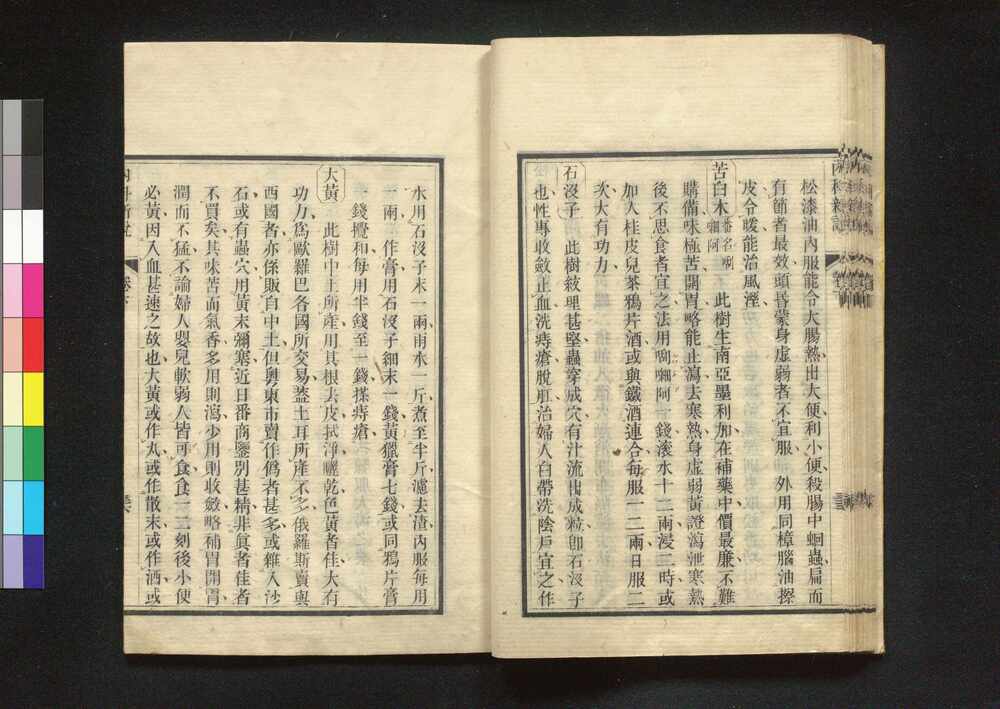 松漆油內服能令大腸熱出大便利小便殺腸中蛔蟲扁而
有節者最效頭昏蒙身虛弱者不宜服 外用同樟腦油擦
皮令暖能治風溼
苦白木 此樹生南亞墨利加在補藥中價最廉不難
購備味極苦開胃略能止瀉去寒熱身虛弱黃證瀉泄寒熱
後不思食者宜之法用 阿一錢滾水十二兩浸二時或
加入桂皮兒茶鴉片酒或與鐵酒連合每服一二兩日服二
次大有功力
石沒子 此樹紋理甚堅蟲穿成穴有汁流出成粒卽石沒子
也性專收斂正血洗痔瘡脫肛治婦人白帶洗陰戶宜之作
水用石沒子末一兩雨水一斤煮至半斤濾去渣內服每用
一兩 作膏用石沒子細末一錢黃獵膏七錢或同鴉片膏
一錢攪和每用半錢至一錢搽痔瘡
大黃 此樹中土所產用其根去皮拭淨曬乾色黃者佳大有
功力爲歐羅巴各國所交易葢土耳所產不多俄羅斯賣與
西國者亦係販自中土但粵東市賣作僞者甚多或雜入沙
石或有蟲穴用黃末彌塞近日番商鑒別甚精非眞者佳者
不買矣其味苦而氣香多用則瀉少用則收斂略補胃開胃
潤而不猛不論婦人嬰兒軟弱人皆可食食一二刻後小便
必黃因入血甚速之故也大黃或作丸或作散末或作酒或